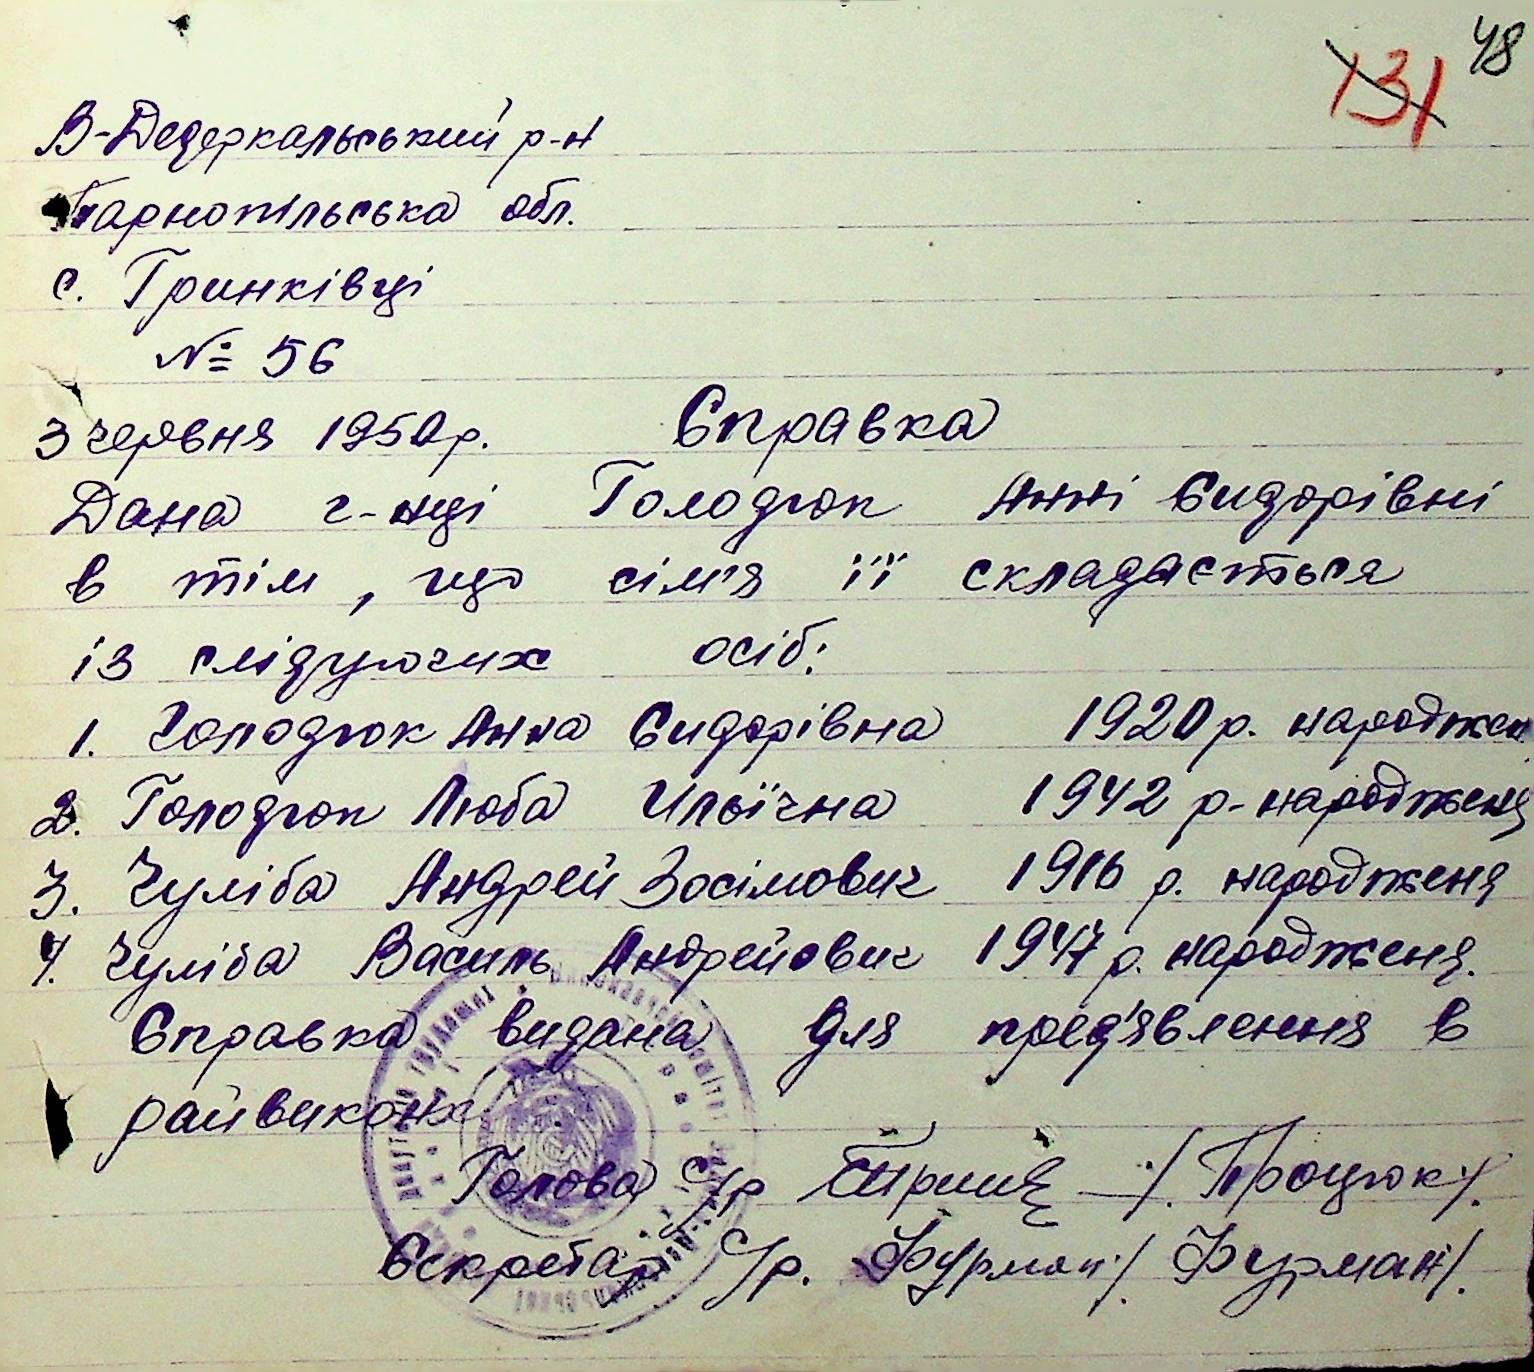 48
131
В-Дедеркальський р-н
Тарнопільська обл.
с. Гринківці
№ 56
3 червня 1950 р. Справка
Дана г-нці Голодюк Анні Сидорівні
в тім, що сім'я її складається
із слідуючих осіб:
1. Голодюк Анна Сидорівна 1920 р. народжен
2. Голодюк Люба Ильїчна 1942 р. народженя
3. Чуліба Андрей Зосімович 1916 р. народженя
4. Чуліба Василь Андрейович 1947 р. народженя.
Справка видана для пред'явлення в
райвикон
Голова С/р /Процюк/.
Секретар С/р. Фурман /Фурман/.